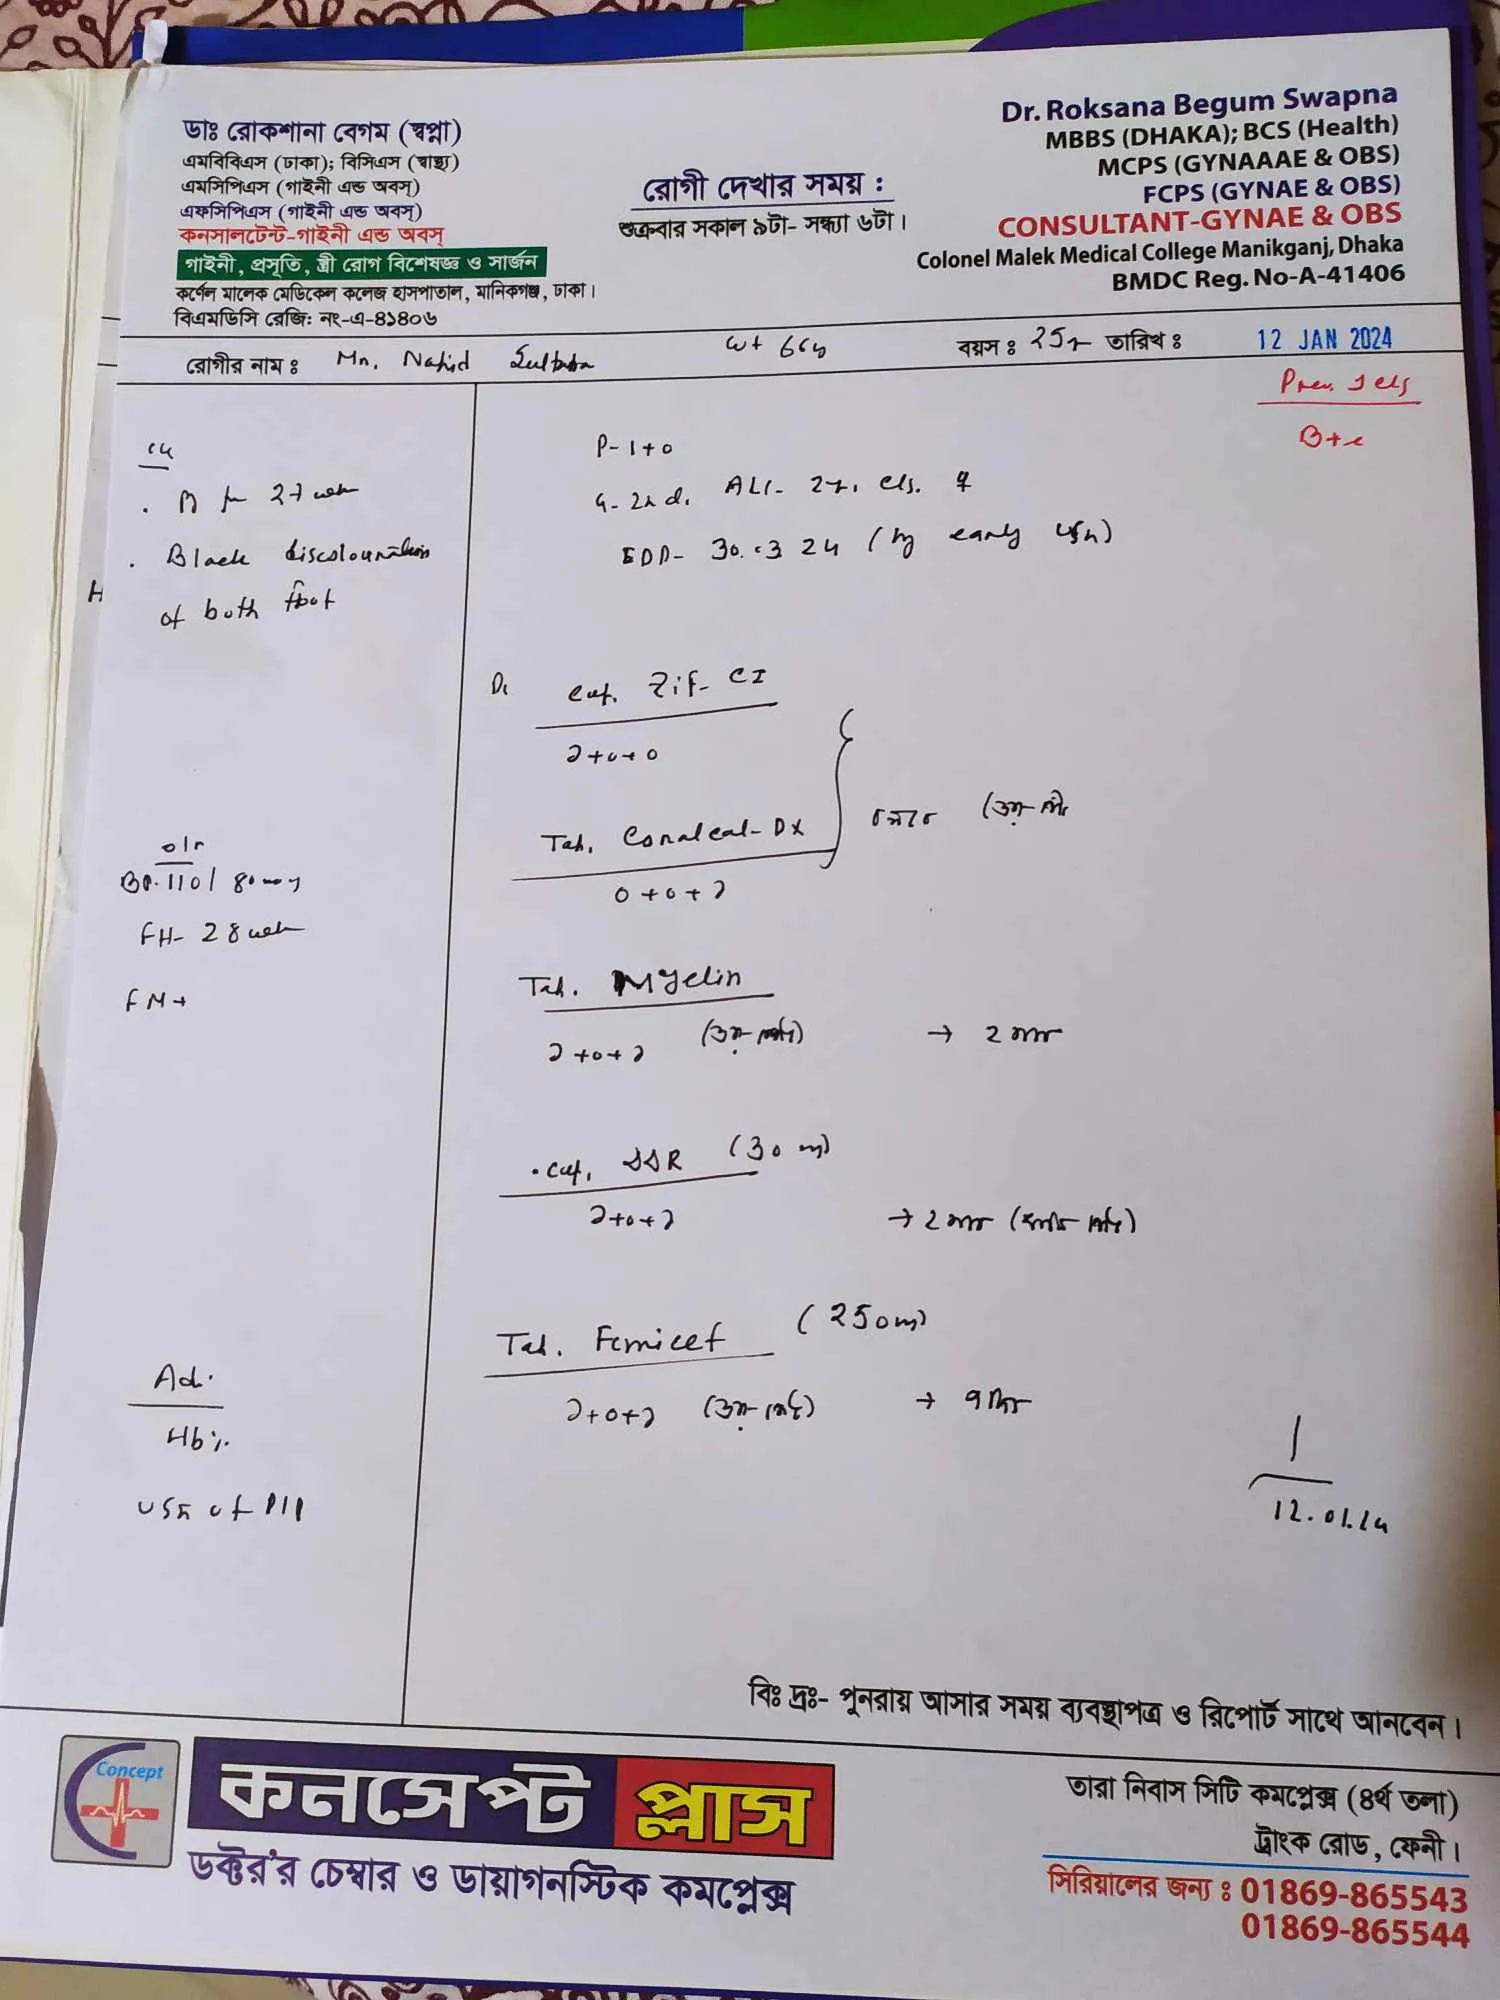 ডাঃ রোকশানা বেগম (স্বপ্না)
এমবিবিএস (ঢাকা); বিসিএস (স্বাস্থ্য)
এমসিপিএস (গাইনী এন্ড অবস্)
এফসিপিএস (গাইনী এন্ড অবস্)
কনসালটেন্ট-গাইনী এন্ড অবস্
গাইনী, প্রসূতি, স্ত্রী রোগ বিশেষজ্ঞ ও সার্জন
কর্ণেল মালেক মেডিকেল কলেজ হাসপাতাল, মানিকগঞ্জ, ঢাকা।
বিএমডিসি রেজি: নং-এ-৪১৪০৬
রোগী দেখার সময় :
শুক্রবার সকাল ৯টা- সন্ধ্যা ৬টা।
Dr. Roksana Begum Swapna
MBBS (DHAKA); BCS (Health)
MCPS (GYNAAAE & OBS)
FCPS (GYNAE & OBS)
CONSULTANT-GYNAE & OBS
Colonel Malek Medical College Manikganj, Dhaka
BMDC Reg. No-A-41406
রোগীর নাম : Mn. Nahid Sultana wt বয়স : 25y তারিখ : 12 JAN 2024
Prev. 1 c/s
B+ve
27 wk
Black discolouration
of both foot
H
P- 1+0
G- 2nd. ALC- 2y. c/s. ♀
EDD- 30.3 24 (by early USG)
Cap. Zif- CI
১+০+০
Tab. Coralcal-DX
০+০+১
BP. 110/80
FH- 28 wk
FM+
Tab. Myelin
১+০+১ → 2 মাস
Cap. (30 mg)
১+০+১ → 2 মাস
Tab. Femicef (250mg)
১+০+১ → ৭ দিন
Ad.
Hb%
USG of P/P
12.01.24
বিঃ দ্রঃ- পুনরায় আসার সময় ব্যবস্থাপত্র ও রিপোর্ট সাথে আনবেন।
Concept
কনসেপ্ট প্লাস
ডক্টর'র চেম্বার ও ডায়াগনস্টিক কমপ্লেক্স
তারা নিবাস সিটি কমপ্লেক্স (৪র্থ তলা)
ট্রাংক রোড, ফেনী।
সিরিয়ালের জন্য : 01869-865543
01869-865544